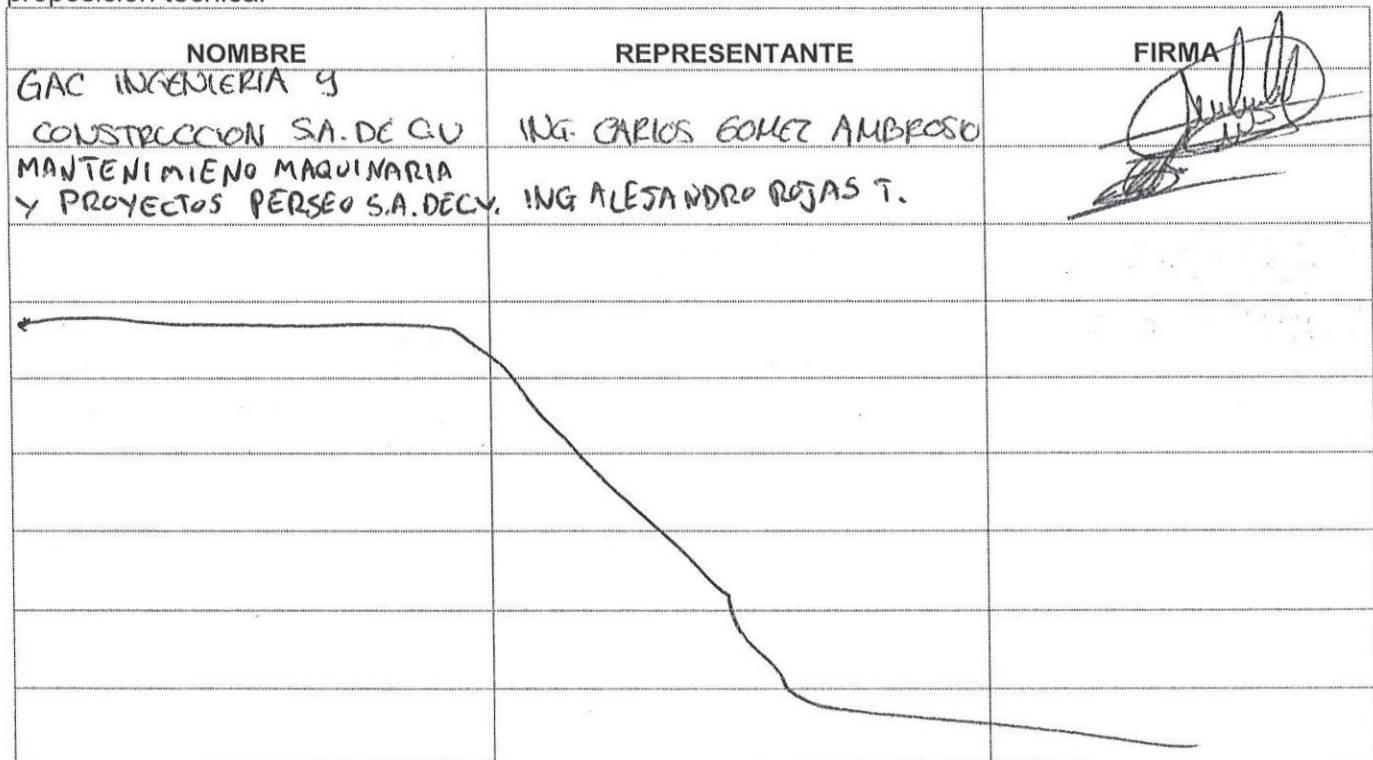 proposición técnica.
NOMBRE REPRESENTANTE FIRMA
GAC INGENIERIA Y
CONSTRUCCCION S.A. DE C.V ING. CARLOS GOMEZ AMBROSIO
MANTENIMIENO MAQUINARIA
Y PROYECTOS PERSEO S.A. DE C.V. ING ALEJANDRO ROJAS T.